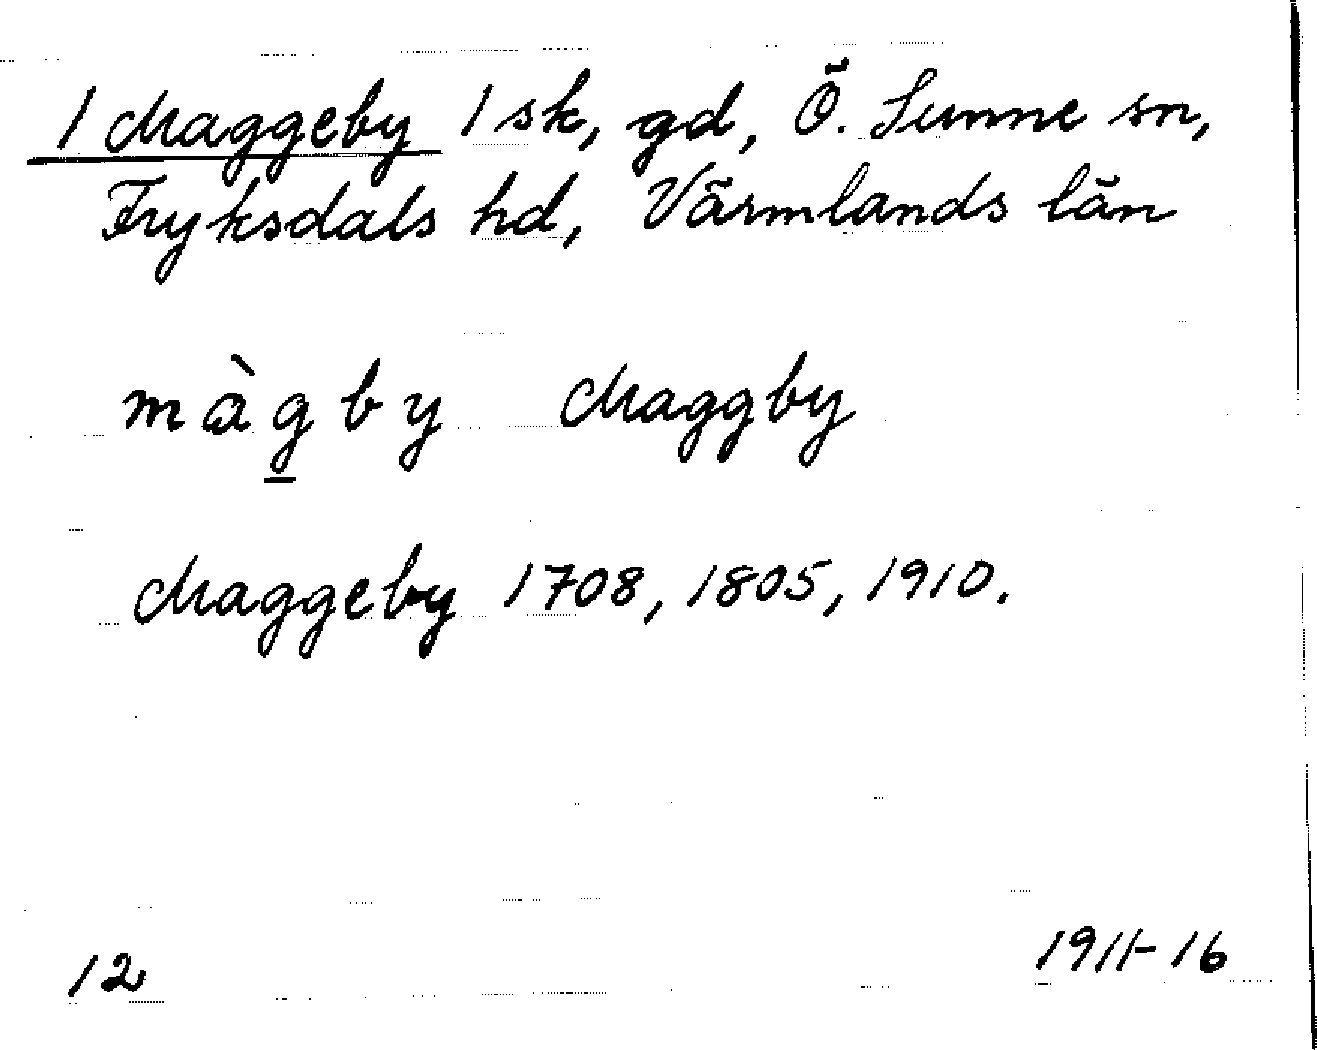 1 Maggeby 1 sk, gd, Ö. Sunne sn,
Fryksdals hd, Värmlands län
màg̲by Maggby
Maggeby 1708, 1805, 1910.
12 1911-16